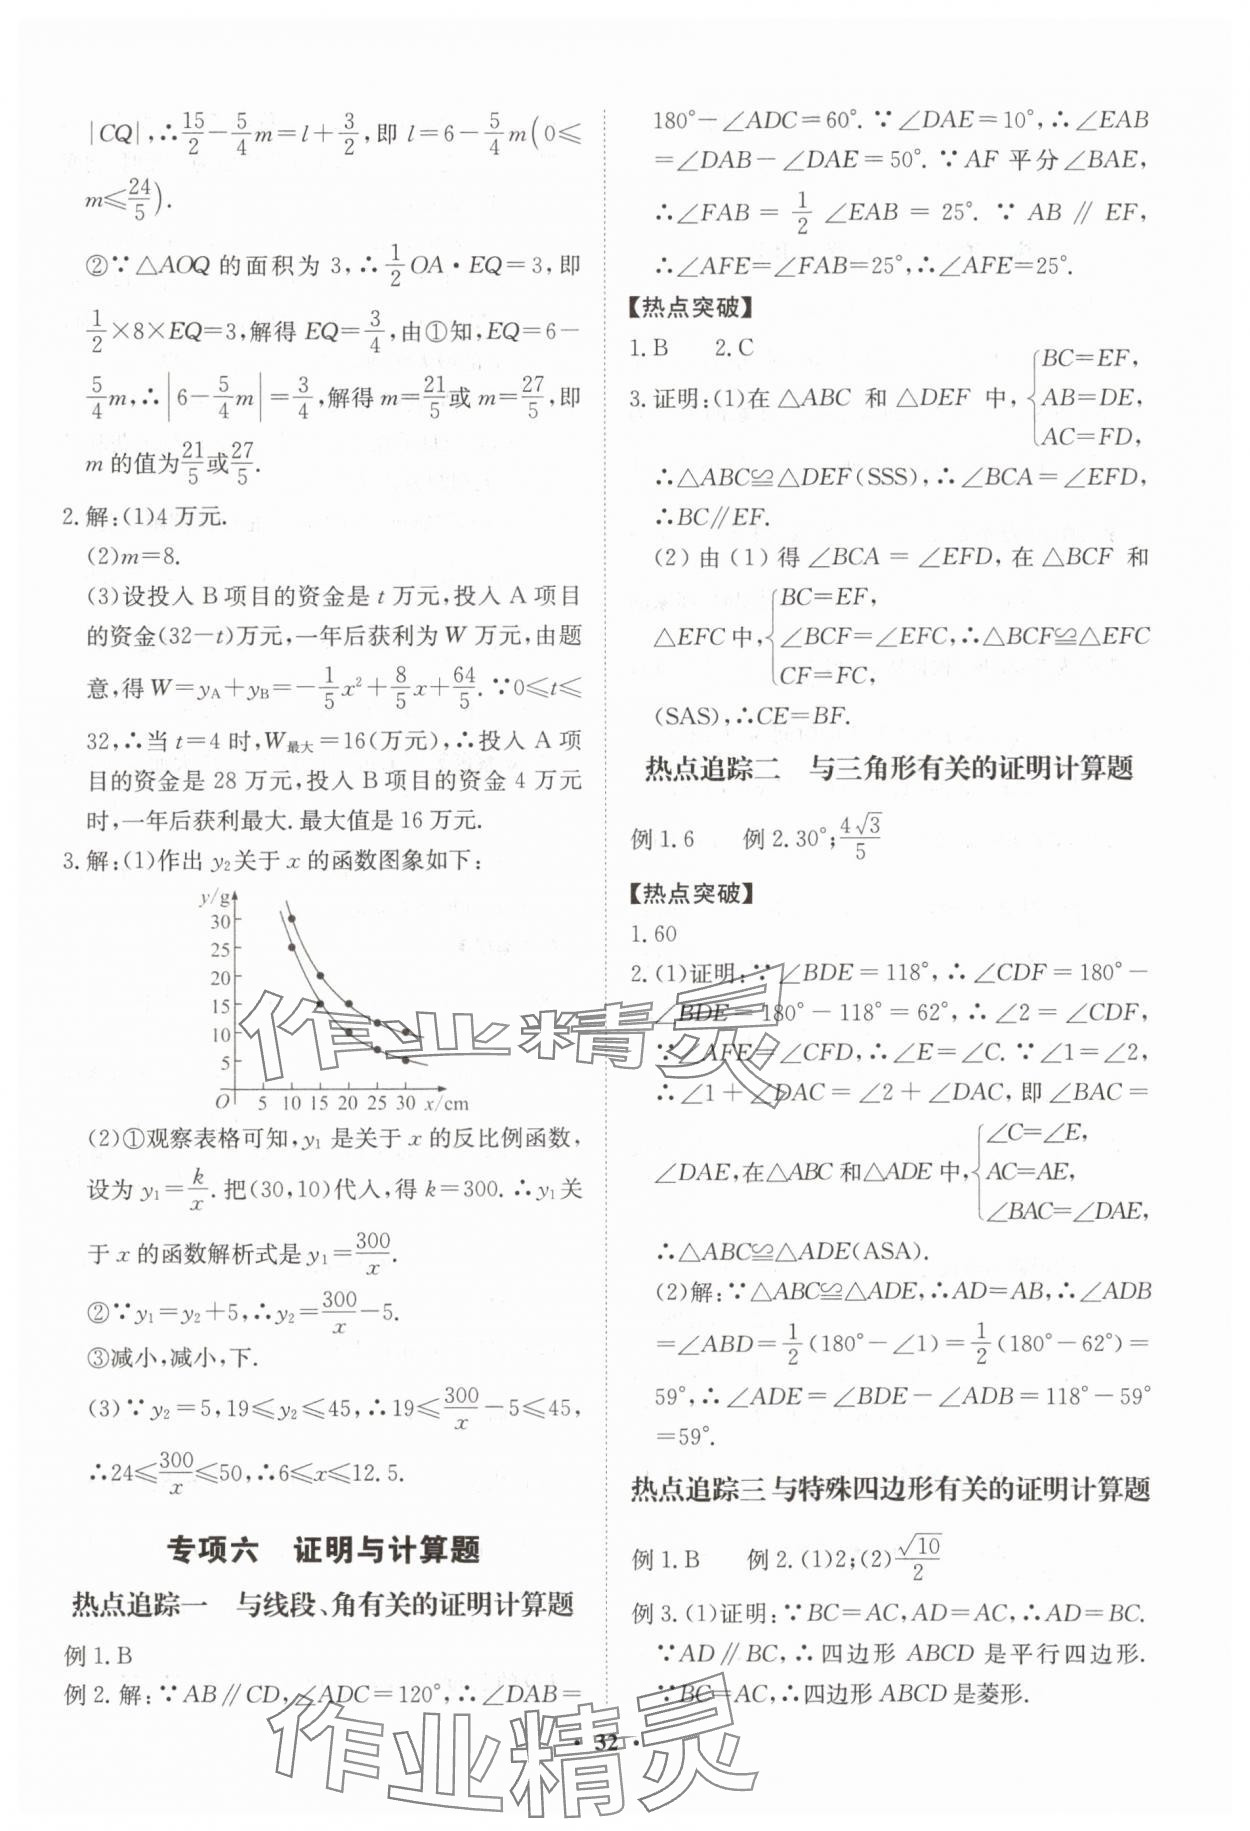 |CQ|,∴15/2−5/4m=l+3/2,即 l=6−5/4m(0≤
m≤24/5).
②∵△AOQ 的面积为 3,∴1/2OA·EQ=3,即
1/2×8×EQ=3,解得 EQ=3/4,由①知,EQ=6−
5/4m,∴|6−5/4m|=3/4,解得 m=21/5或 m=27/5,即
m 的值为21/5或27/5.
2.解:(1)4 万元.
(2)m=8.
(3)设投入 B 项目的资金是 t 万元,投入 A 项目
的资金(32−t)万元,一年后获利为 W 万元,由题
意,得 W=y_A+y_B=−1/5x²+8/5x+64/5.∵0≤t≤
32,∴当 t=4 时,W最大=16(万元),∴投入 A 项
目的资金是 28 万元,投入 B 项目的资金 4 万元
时,一年后获利最大.最大值是 16 万元.
3.解:(1)作出 y₂关于 x 的函数图象如下:
y/g
30
25
20
15
10
5
O 5 10 15 20 25 30 x/cm
(2)①观察表格可知,y₁ 是关于 x 的反比例函数,
设为 y₁=k/x.把(30,10)代入,得 k=300.∴y₁关
于 x 的函数解析式是 y₁=300/x.
②∵y₁=y₂+5,∴y₂=300/x−5.
③减小,减小,下.
(3)∵y₂=5,19≤y₂≤45,∴19≤300/x−5≤45,
∴24≤300/x≤50,∴6≤x≤12.5.
专项六 证明与计算题
热点追踪一 与线段、角有关的证明计算题
例 1.B
例 2.解:∵AB∥CD,∠ADC=120°,∴∠DAB=
180°−∠ADC=60°.∵∠DAE=10°,∴∠EAB
=∠DAB−∠DAE=50°.∵AF 平分∠BAE,
∴∠FAB=1/2∠EAB=25°.∵AB∥EF,
∴∠AFE=∠FAB=25°,∴∠AFE=25°.
【热点突破】
1.B 2.C
3.证明:(1)在△ABC 和△DEF 中,{BC=EF,
AB=DE,
AC=FD,
∴△ABC≌△DEF(SSS),∴∠BCA=∠EFD,
∴BC∥EF.
(2)由(1)得∠BCA=∠EFD,在△BCF 和
△EFC 中,{BC=EF,
∠BCF=∠EFC,∴△BCF≌△EFC
CF=FC,
(SAS),∴CE=BF.
热点追踪二 与三角形有关的证明计算题
例 1.6 例 2.30°;4√3/5
【热点突破】
1.60
2.(1)证明:∵∠BDE=118°,∴∠CDF=180°−
∠BDE=180°−118°=62°,∴∠2=∠CDF,
∵∠AFE=∠CFD,∴∠E=∠C.∵∠1=∠2,
∴∠1+∠DAC=∠2+∠DAC,即∠BAC=
∠DAE,在△ABC 和△ADE 中,{∠C=∠E,
AC=AE,
∠BAC=∠DAE,
∴△ABC≌△ADE(ASA).
(2)解:∵△ABC≌△ADE,∴AD=AB,∴∠ADB
=∠ABD=1/2(180°−∠1)=1/2(180°−62°)=
59°,∴∠ADE=∠BDE−∠ADB=118°−59°
=59°.
热点追踪三 与特殊四边形有关的证明计算题
例 1.B 例 2.(1)2;(2)√10/2
例 3.(1)证明:∵BC=AC,AD=AC,∴AD=BC.
∵AD∥BC,∴四边形 ABCD 是平行四边形.
∵BC=AC,∴四边形 ABCD 是菱形.
·32·
作业精灵
作业精灵